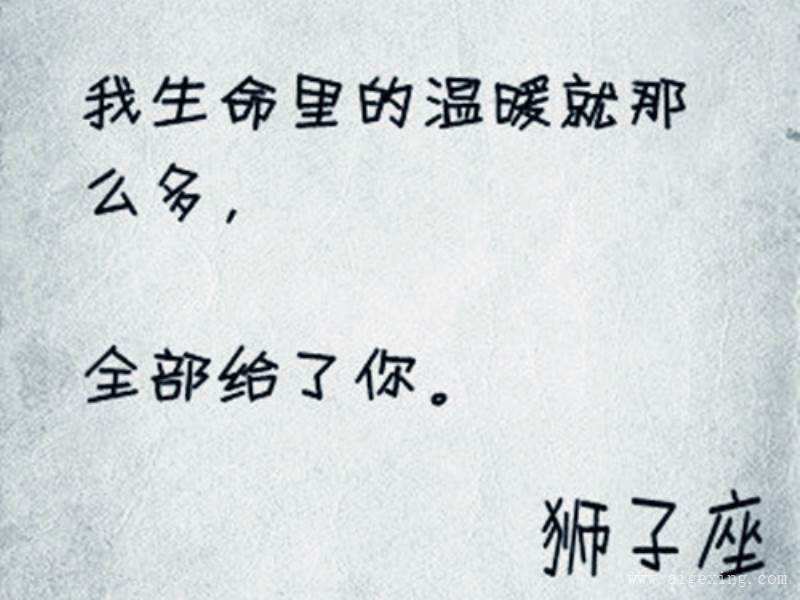 我生命里的温暖就那
么多，
全部给了你。
狮子座
www.aigexing.com